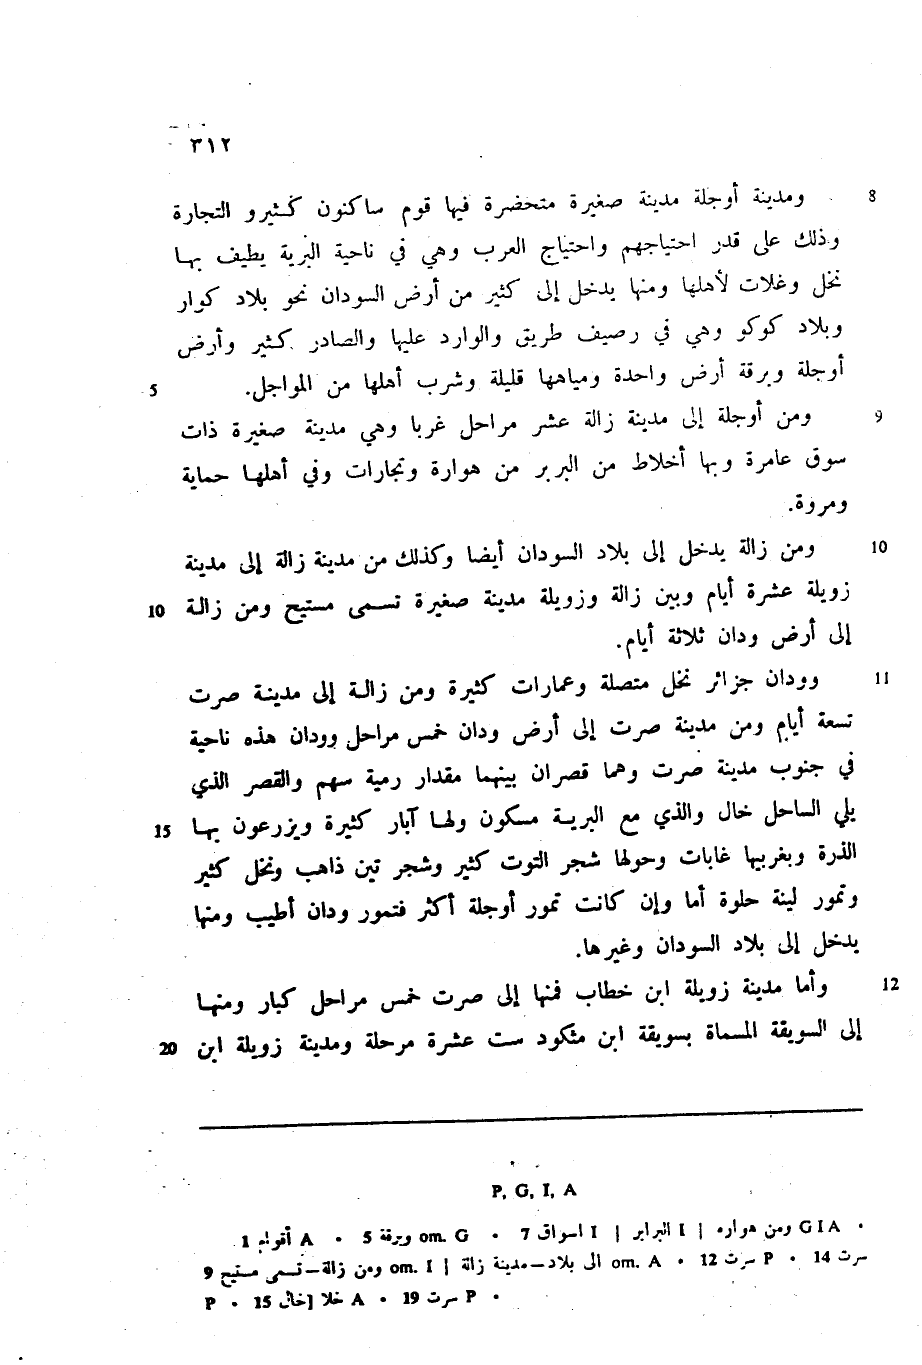 ٣١٢
8 ومدينة أوجلة مدينة صغيرة متحضرة فيها قوم ساكنون كثيرو التجارة
وذلك على قدر احتياجهم واحتياج العرب وهي في ناحية البرية يطيف بها
نخل وغلات لأهلها ومنها يدخل إلى كثير من أرض السودان نحو بلاد كوار
وبلاد كوكو وهي في رصيف طريق والوارد عليها والصادر كثير وأرض
أوجلة وبرقة أرض واحدة ومياهها قليلة وشرب أهلها من المواجل. 5
9 ومن أوجلة إلى مدينة زالة عشر مراحل غربا وهي مدينة صغيرة ذات
سوق عامرة وبها أخلاط من البربر من هوارة وتجارات وفي أهلها حماية
ومروة.
10 ومن زالة يدخل إلى بلاد السودان أيضا وكذلك من مدينة زالة إلى مدينة
زويلة عشرة أيام وبين زالة وزويلة مدينة صغيرة تسمى مستيح ومن زالة 10
إلى أرض ودان ثلاثة أيام.
11 وودان جزائر نخل متصلة وعمارات كثيرة ومن زالة إلى مدينة صرت
تسعة أيام ومن مدينة صرت إلى أرض ودان خمس مراحل وودان هذه ناحية
في جنوب مدينة صرت وهما قصران بينهما مقدار رمية سهم والقصر الذي
يلي الساحل خال والذي مع البرية مسكون ولها آبار كثيرة ويزرعون بها 15
الذرة وبغربيها غابات وحولها شجر التوت كثير وشجر تين ذاهب ونخل كثير
وتمور لينة حلوة أما وإن كانت تمور أوجلة أكثر فتمور ودان أطيب ومنها
يدخل إلى بلاد السودان وغيرها.
12 وأما مدينة زويلة ابن خطاب فمنها إلى صرت خمس مراحل كبار ومنها
إلى السويقة المسماة بسويقة ابن مثكود ست عشرة مرحلة ومدينة زويلة ابن 20
P, G, I, A
1 أقوام A • 5 وبرقة om. G • 7 اسواق I | البرابر I | ومن هواره GIA •
9 ومن زالة–تسمى مستيح om. I | الى بلاد–مدينة زالة om. A • 12 سرت P • 14 سرت
P • 15 خال] خلا A • 19 سرت P •